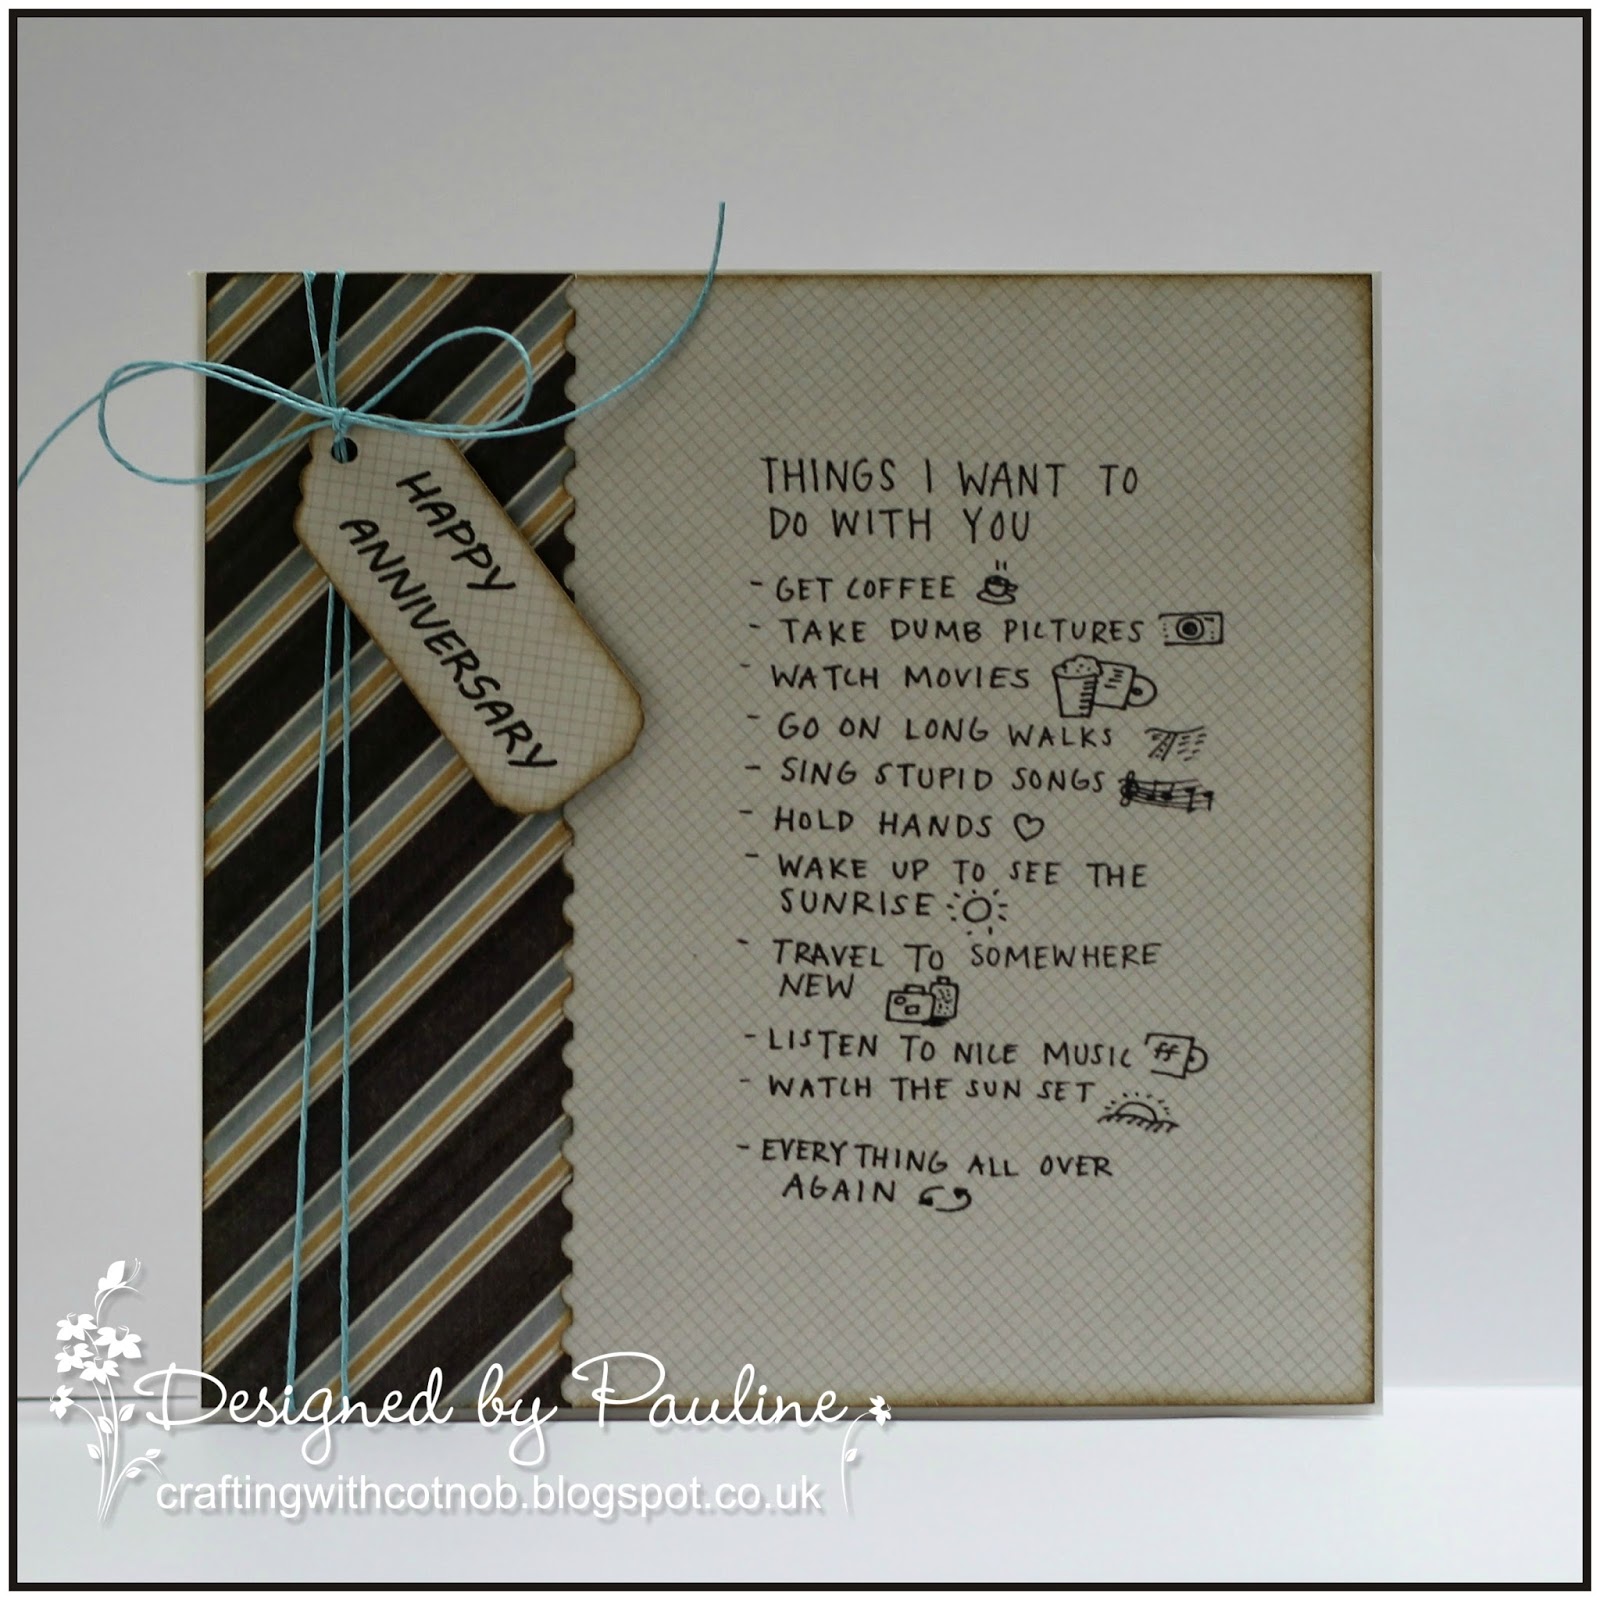 HAPPY
ANNIVERSARY
THINGS I WANT TO
DO WITH YOU
- GET COFFEE
- TAKE DUMB PICTURES
- WATCH MOVIES
- GO ON LONG WALKS
- SING STUPID SONGS
- HOLD HANDS
- WAKE UP TO SEE THE
SUNRISE
- TRAVEL TO SOMEWHERE
NEW
- LISTEN TO NICE MUSIC
ff
- WATCH THE SUN SET
- EVERYTHING ALL OVER
AGAIN
Designed by Pauline
craftingwithcotnob.blogspot.co.uk